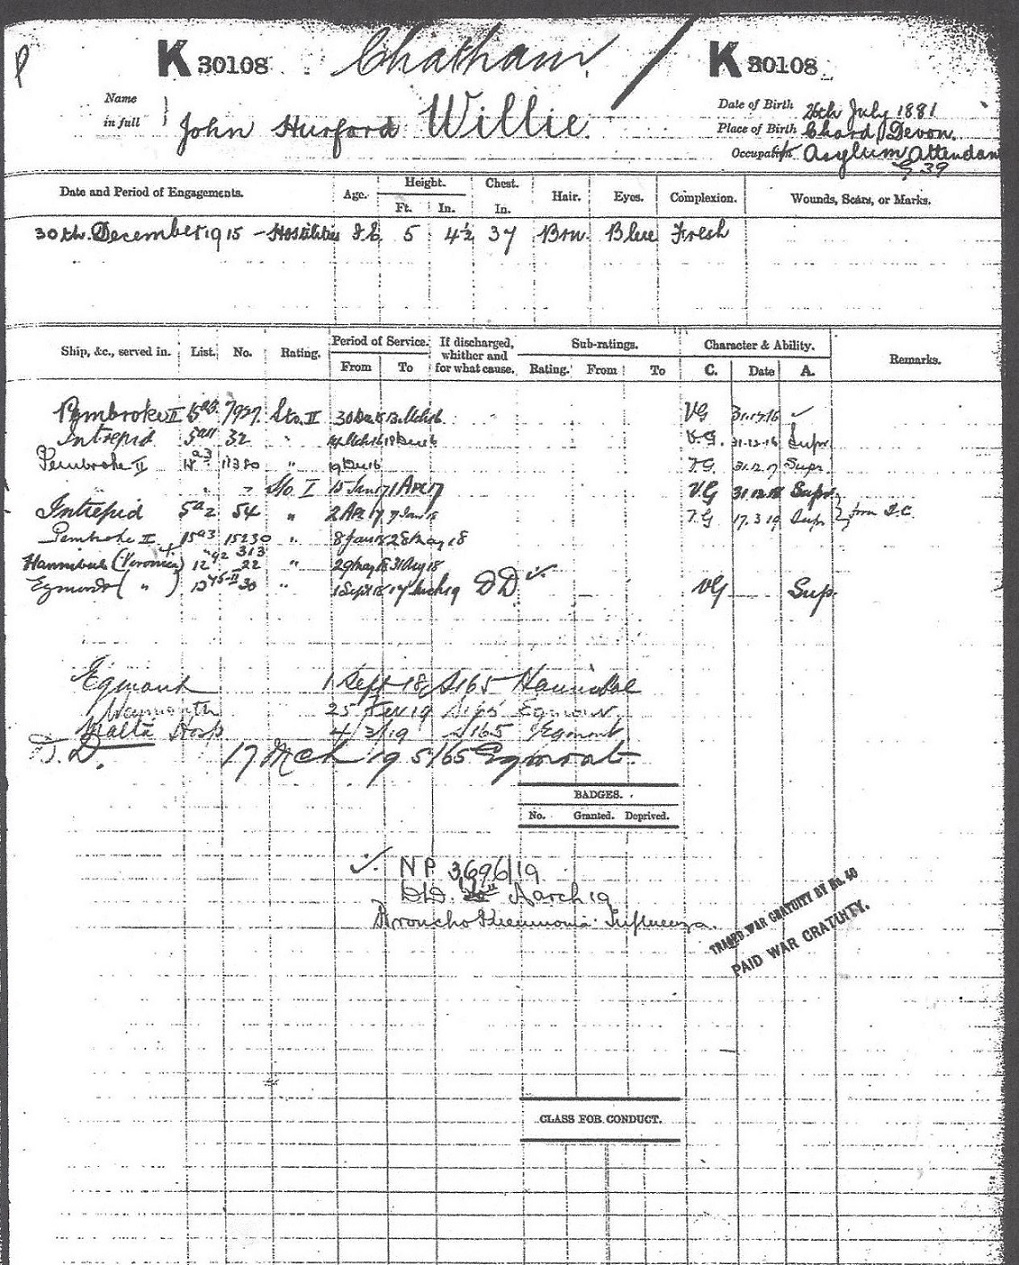 K 30108 Chatham K 30108
Name in full John Hurford Willie.
Date of Birth 26th July 1881
Place of Birth Chard, Devon.
Occupation Asylum Attendan
Date and Period of Engagements. Age. Height. Ft. In. Chest. In. Hair. Eyes. Complexion. Wounds, Scars, or Marks.
30th. December 1915 - Hostilities 5 4½ 37 Brn. Blue Fresh
Ship, &c., served in. List. No. Rating. Period of Service. From To If discharged, whither and for what cause. Sub-ratings. Rating. From To Character & Ability. C. Date A. Remarks.
Pembroke II 7927 Sto. II 30 Dec 15 VG 31.12.16 ✓
Intrepid 32 " V.G. 31.12.16 Supr.
Pembroke II " 19 Dec 16 Supr.
" Sto. I 15 Jan 17 1 Apl 17 VG 31.12.18 Supr
Intrepid 5a2 54 " 2 Apl 17 7 Jan 18 17.3.19 Supr
Pembroke II 15a3 15230 " 8 Jan 18 28 May 18
Hannibal (Veronica) 12 " 29 May 18 31 Aug 18
Egmont ( " ) " 1 Sept 18 17 March 19 DD ✓ VG Sup.
Egmont 1 Sept 18 S165 Hannibal
Weymouth 25 Feb 19 S165 Egmont
Malta Hosp. 4/3/19 S165 Egmont
D.D. 17 Mch 19 S165 Egmont.
BADGES.
No. Granted. Deprived.
✓. NP 3696/19
D.D. March 19
Broncho Pneumonia. Influenza.
TRACED WAR GRATUITY BY No. 40
PAID WAR GRATUITY.
CLASS FOR CONDUCT.